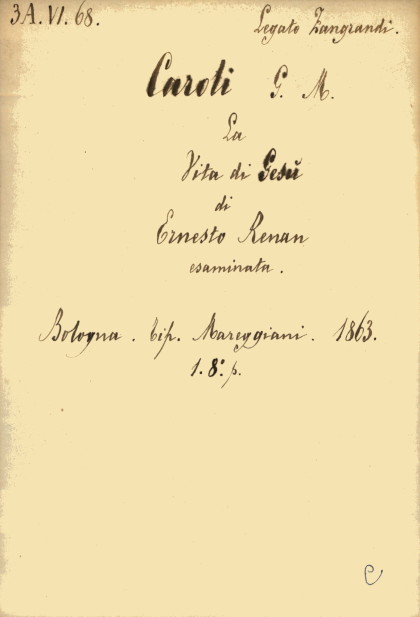 3A. VI. 68.
Legato Zangrandi.
Caroli G. M.
La
Vita di Gesù
di
Ernesto Renan
esaminata.
Bologna. Tip. Mareggiani. 1863.
1. 8.° p.
C